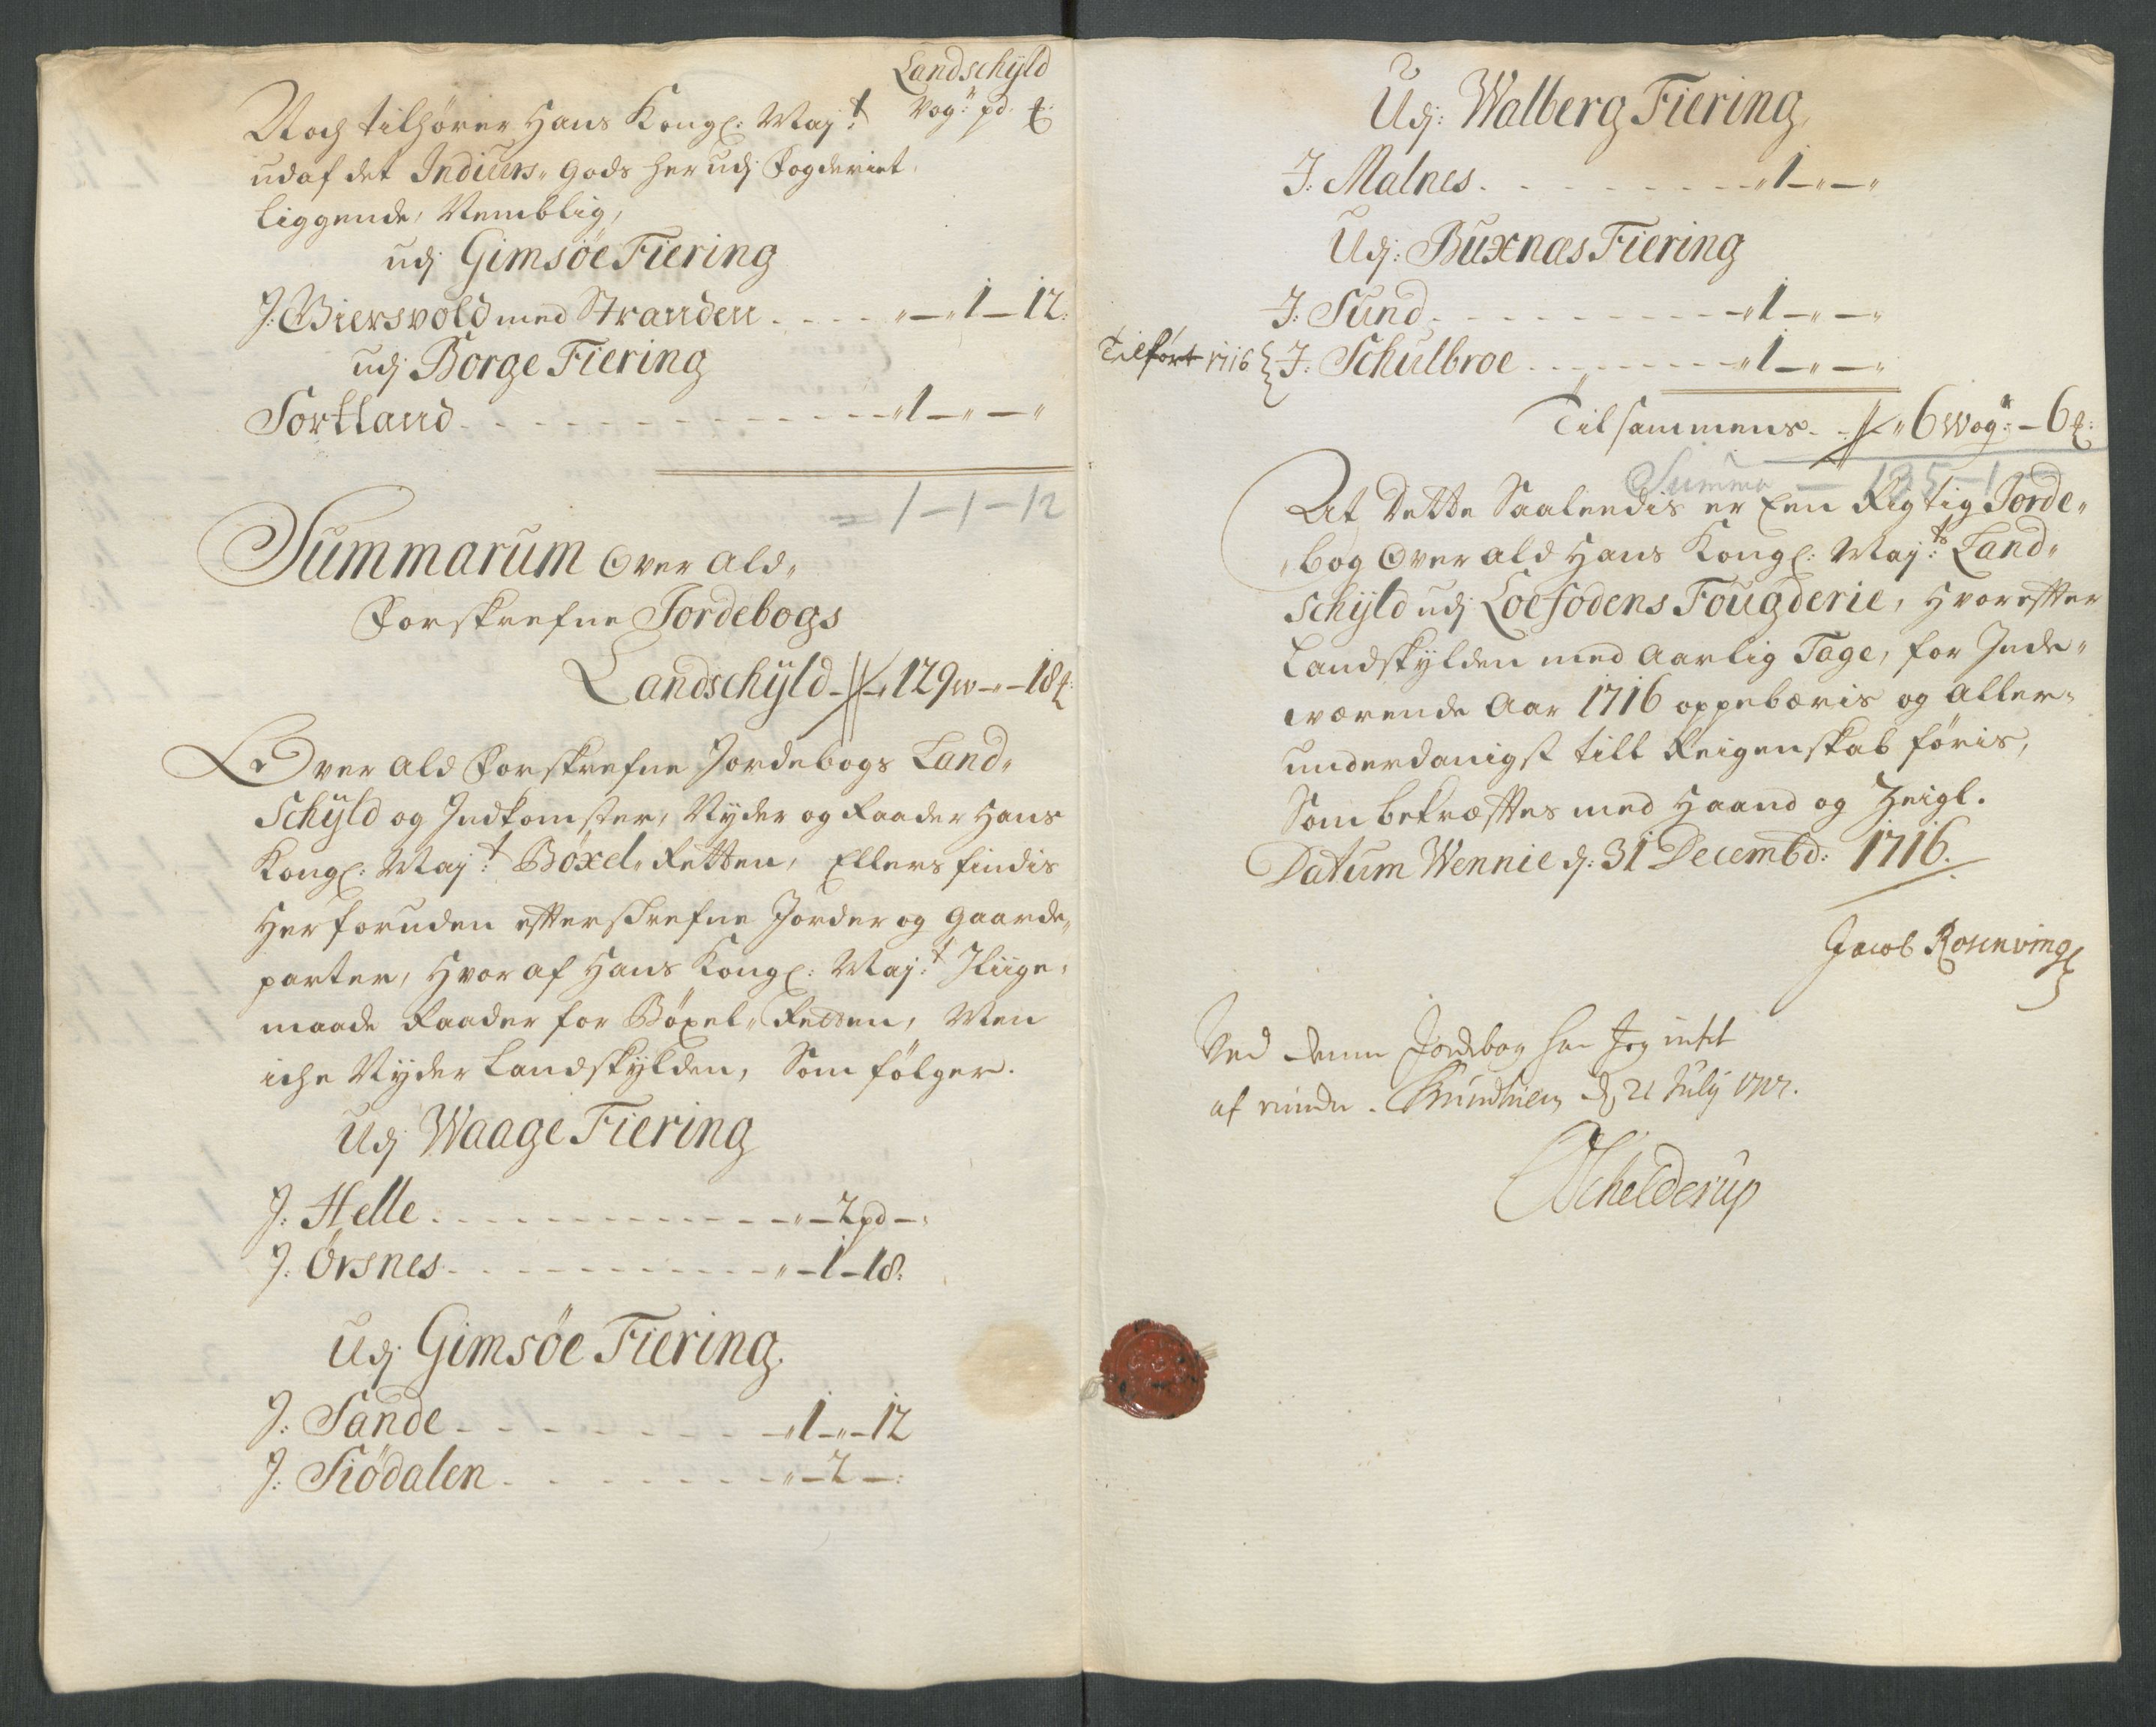 Landschÿld
Noch tilhører Hans Kongl: Maj:t Vog:r pd. ₤
udaf det Indiwrs Gods her udj Fogderiet
liggende, Nemblig,
udj Gimsöe Fiering
J: Biersvold med Stranden . . . . „ — „ 1 — 12:
udj Borge Fiering
Sortland . . . . „ 1 — „ — „
= 1 — 1 — 12
Summarum Over Ald
Forskrefne Jordebogs
Landschÿld — „ 129 w — „ — 18 ₤:
Over Ald Forskrefne Jordebogs Land„
Schÿld og Indkomster, Nyder og Raader Hans
Kongl: Maj:t Böxel„ Retten, Ellers findis
Herforuden efterskrefne Jorder og Gaarde„
parter, Hvor af Hans Kongl: Maj:t Iliige„
maade Raader for Böxel„ Retten, Men
iche Nyder Landskylden, Som fölger.
Udj Waage Fiering
J: Helle . . . . „ — 2 pd — „
J: Örsnes . . . . „ — 1 — 18:
Udj Gimsöe Fiering
J: Sande . . . . „ 1 — „ — 12
J: Siödalen . . . . „ — 2 — :
Udj: Walberg Fiering
J: Malnes . . . . „ 1 — „ — „
Udj: Buxnæs Fiering
J: Sund . . . . „ 1 — „ — „
Tilfört 1716 { J: Schulbroe . . . . „ 1 — „ — „
Tilsammens . . „ 6 Wog:r — 6 ₤:
Summa — 135 — 1
At Dette Saaledis er Een Rigtig Jorde„
„bog Over Ald Hans Kongl: Maj:ts Land„
Schÿld udj Loefodens Fougderie, Hvorefter
Landskylden med Aarlig Tage, for Inde„
wærende Aar 1716 oppebæris og Aller„
underdanigst till Reigenskab föris,
Som bekræftes med Haand og Zeigl.
Datum Wennie d: 31 Decembd: 1716.
Jacob Rosenving
Ved denne Jordebog har Jeg intet
at minde. Trundhiem d. 21 Julij 1717.
Schelderup